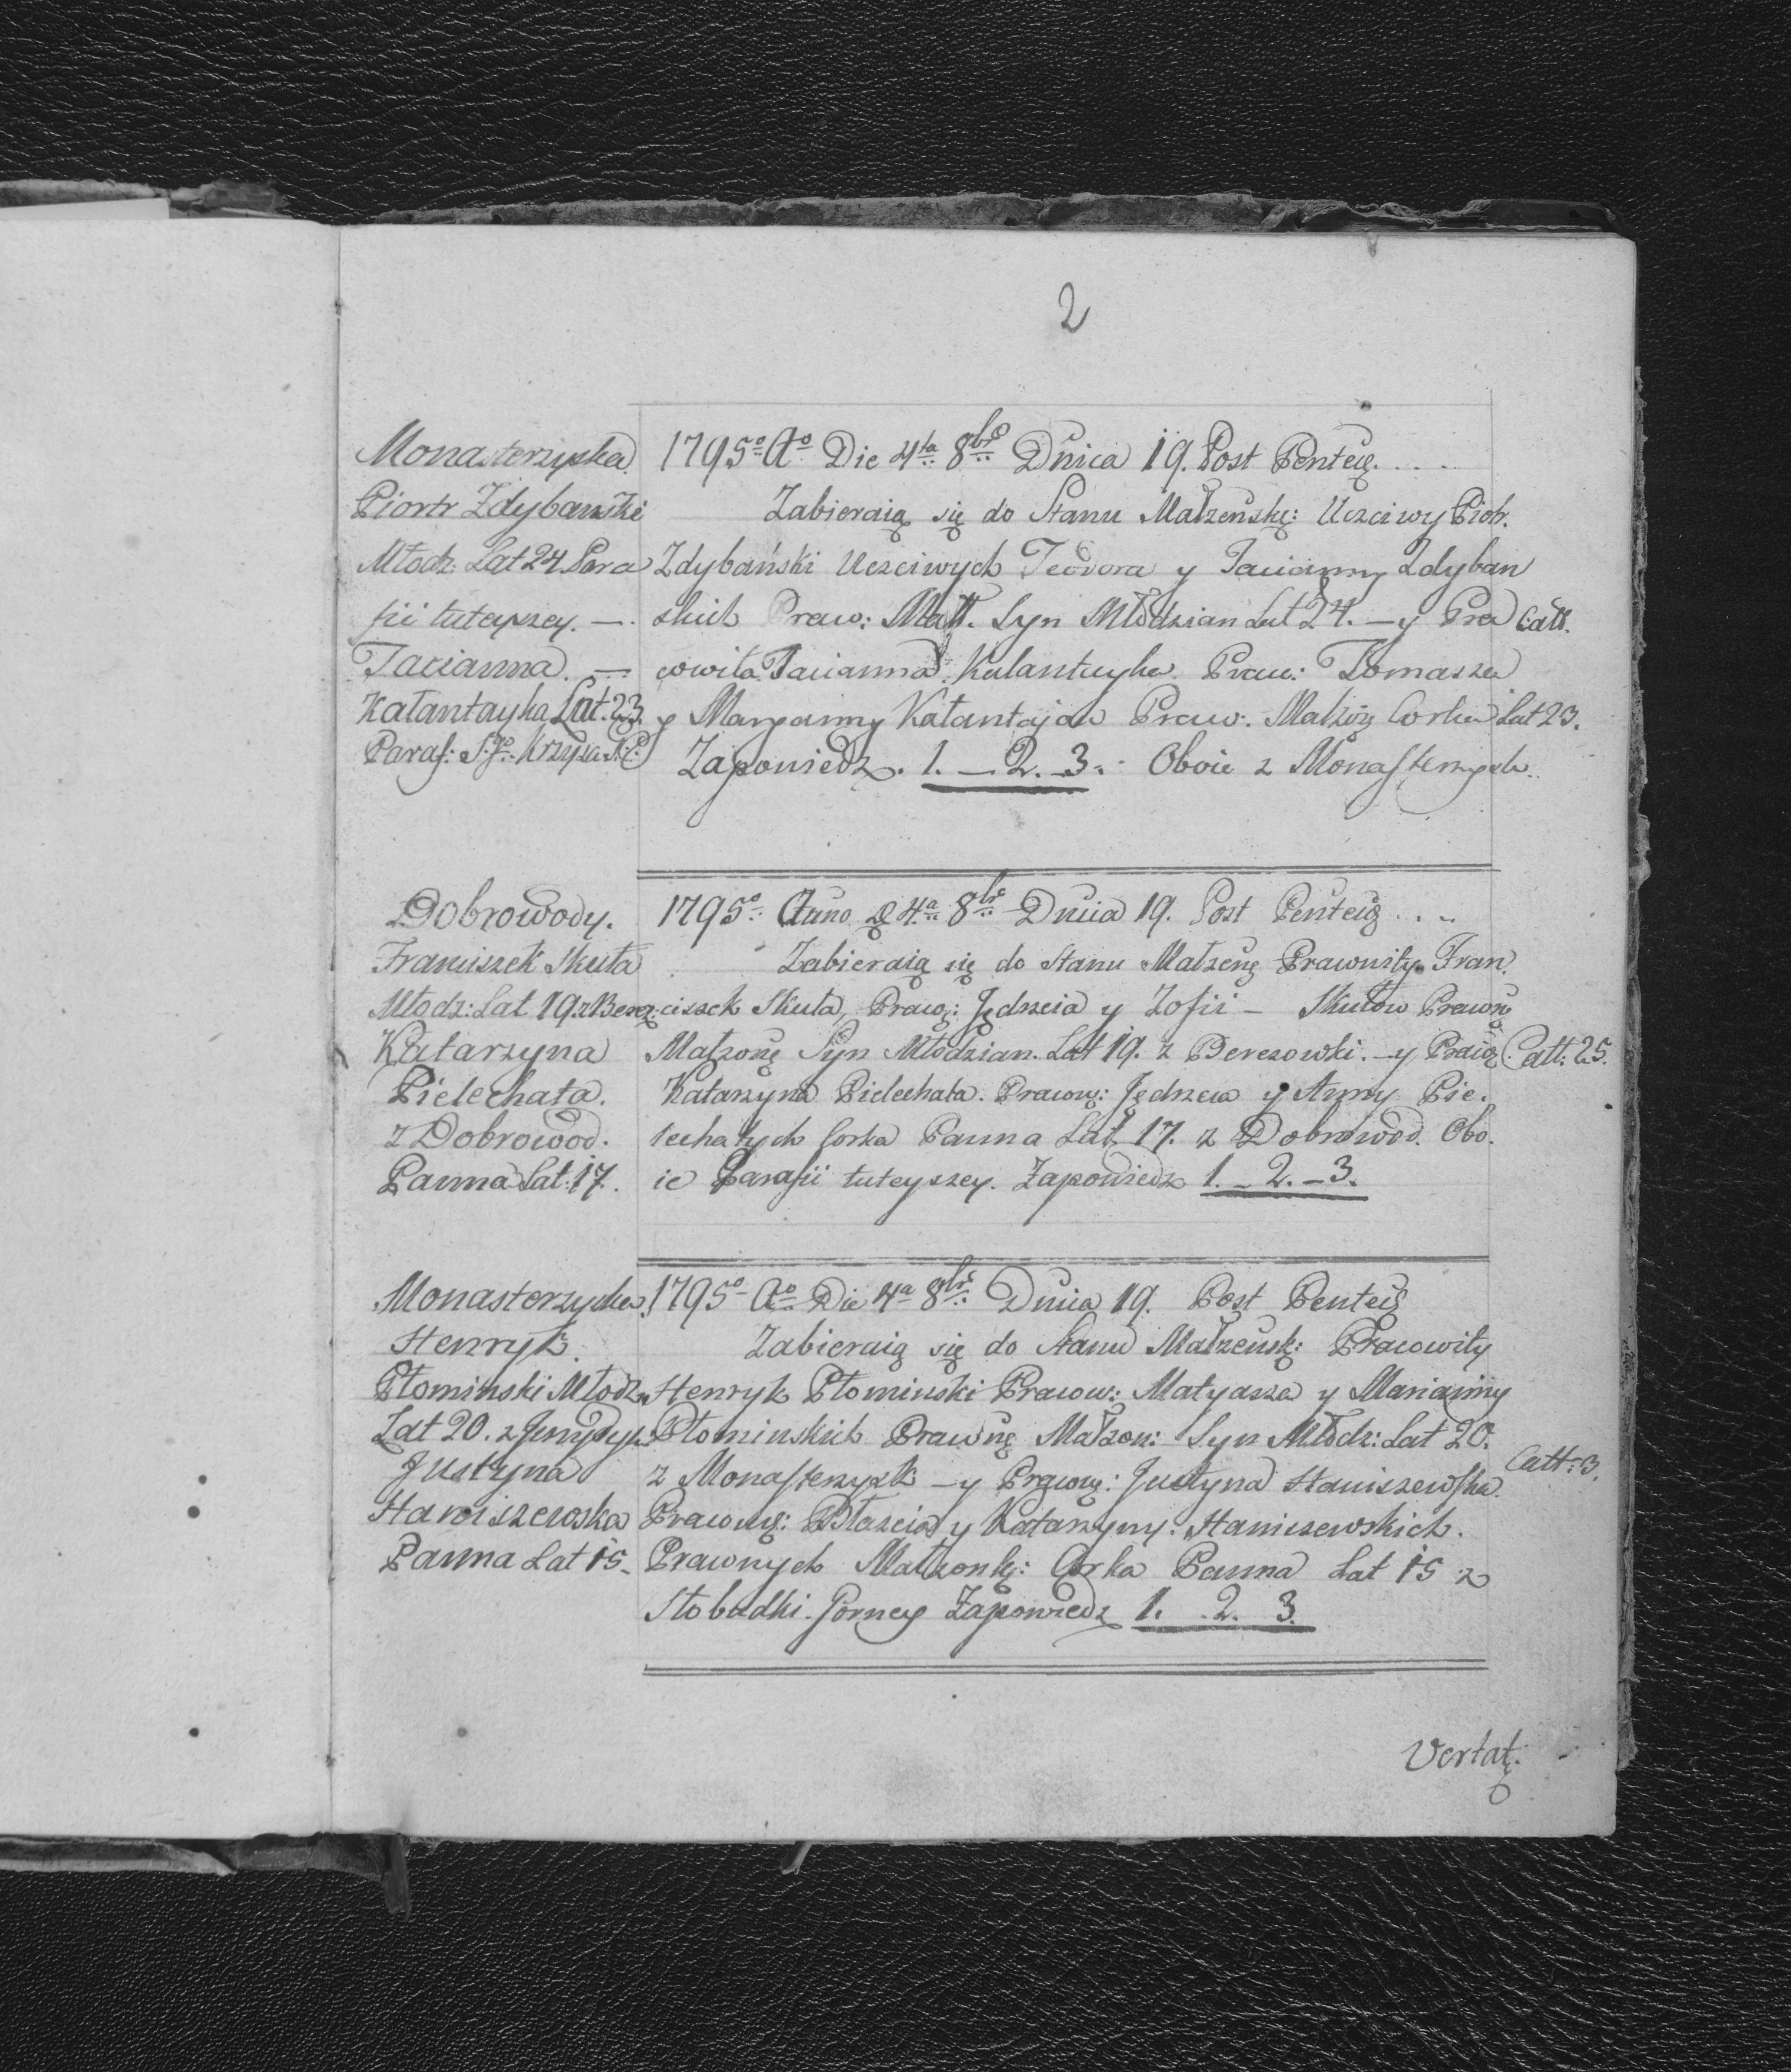 2
Monasterzyska
Piortr Zdybański
Młodz: Lat 24 Para
fii tuteyszey. —.
Tacianna. —
Kałantayka Lat. 23.
Paraf: S.go Krzyża
1795o Ao Die 4ta 8bre Dnica 19. Post Pentec. . . .
Zabieraią się do Stanu Małzeńsk: Uczciwy Piotr.
Zdybański Uczciwych Teodora y Tacianny Zdyban
skich Praw: Małż. Syn Młodzian Lat 24. — y Pra
cowita Tacianna Kałantayka Prac: Tomasza
y Maryanny Kałantajow Praw. Małżo Corka Lat 23.
Zapowiedz. 1. — 2. — 3. Oboie z Monasterzysk.
Catt.
Dobrowody.
Franciszek Skuta
Młodz: Lat 19. z Berez:
Katarzyna
Pielechata.
z Dobrowod.
Panna Lat: 17.
1795o Anno D 4a 8bre Dnica 19. Post Pentec . . .
Zabieraią się do Stanu Małzeń Pracowity Fran.
ciszek Skuta, Prac: Jędrzeia y Zofii — Skutow Prawn
Małzon Syn Młodzian. Lat 19. z Berezowki. — y Prac
Katarzyna Pielechata. Pracow: Jędrzeia y Anny Pie.
lechatych Corka Panna Lat 17. z Dobrowod. Obo.
ie Parafii tuteyszey. Zapowiedz 1. — 2. — 3.
Catt: 25.
Monasterzyska.
Henryk
Płominski Młodz
Lat 20.
Justyna
Staniszewska
Panna Lat 15.
1795o Ao Die 4a 8bre Dnica 19. Post Pentec
Zabieraią się do Stanu Małzeńsk: Pracowity
Henryk Płominski Pracow: Matyasza y Marianny
Płominskich Prawn Małzon: Syn Młodz: Lat 20.
z Monasterzysk — y Pracow: Justyna Staniszewska.
Pracow: Błazeia y Katarzyny: Staniszewskich.
Prawnych Małzonk: Corka Panna Lat 15 z
Słobudki Gorney Zapowiedz 1. 2. 3.
Catt: 3.
Vertat.